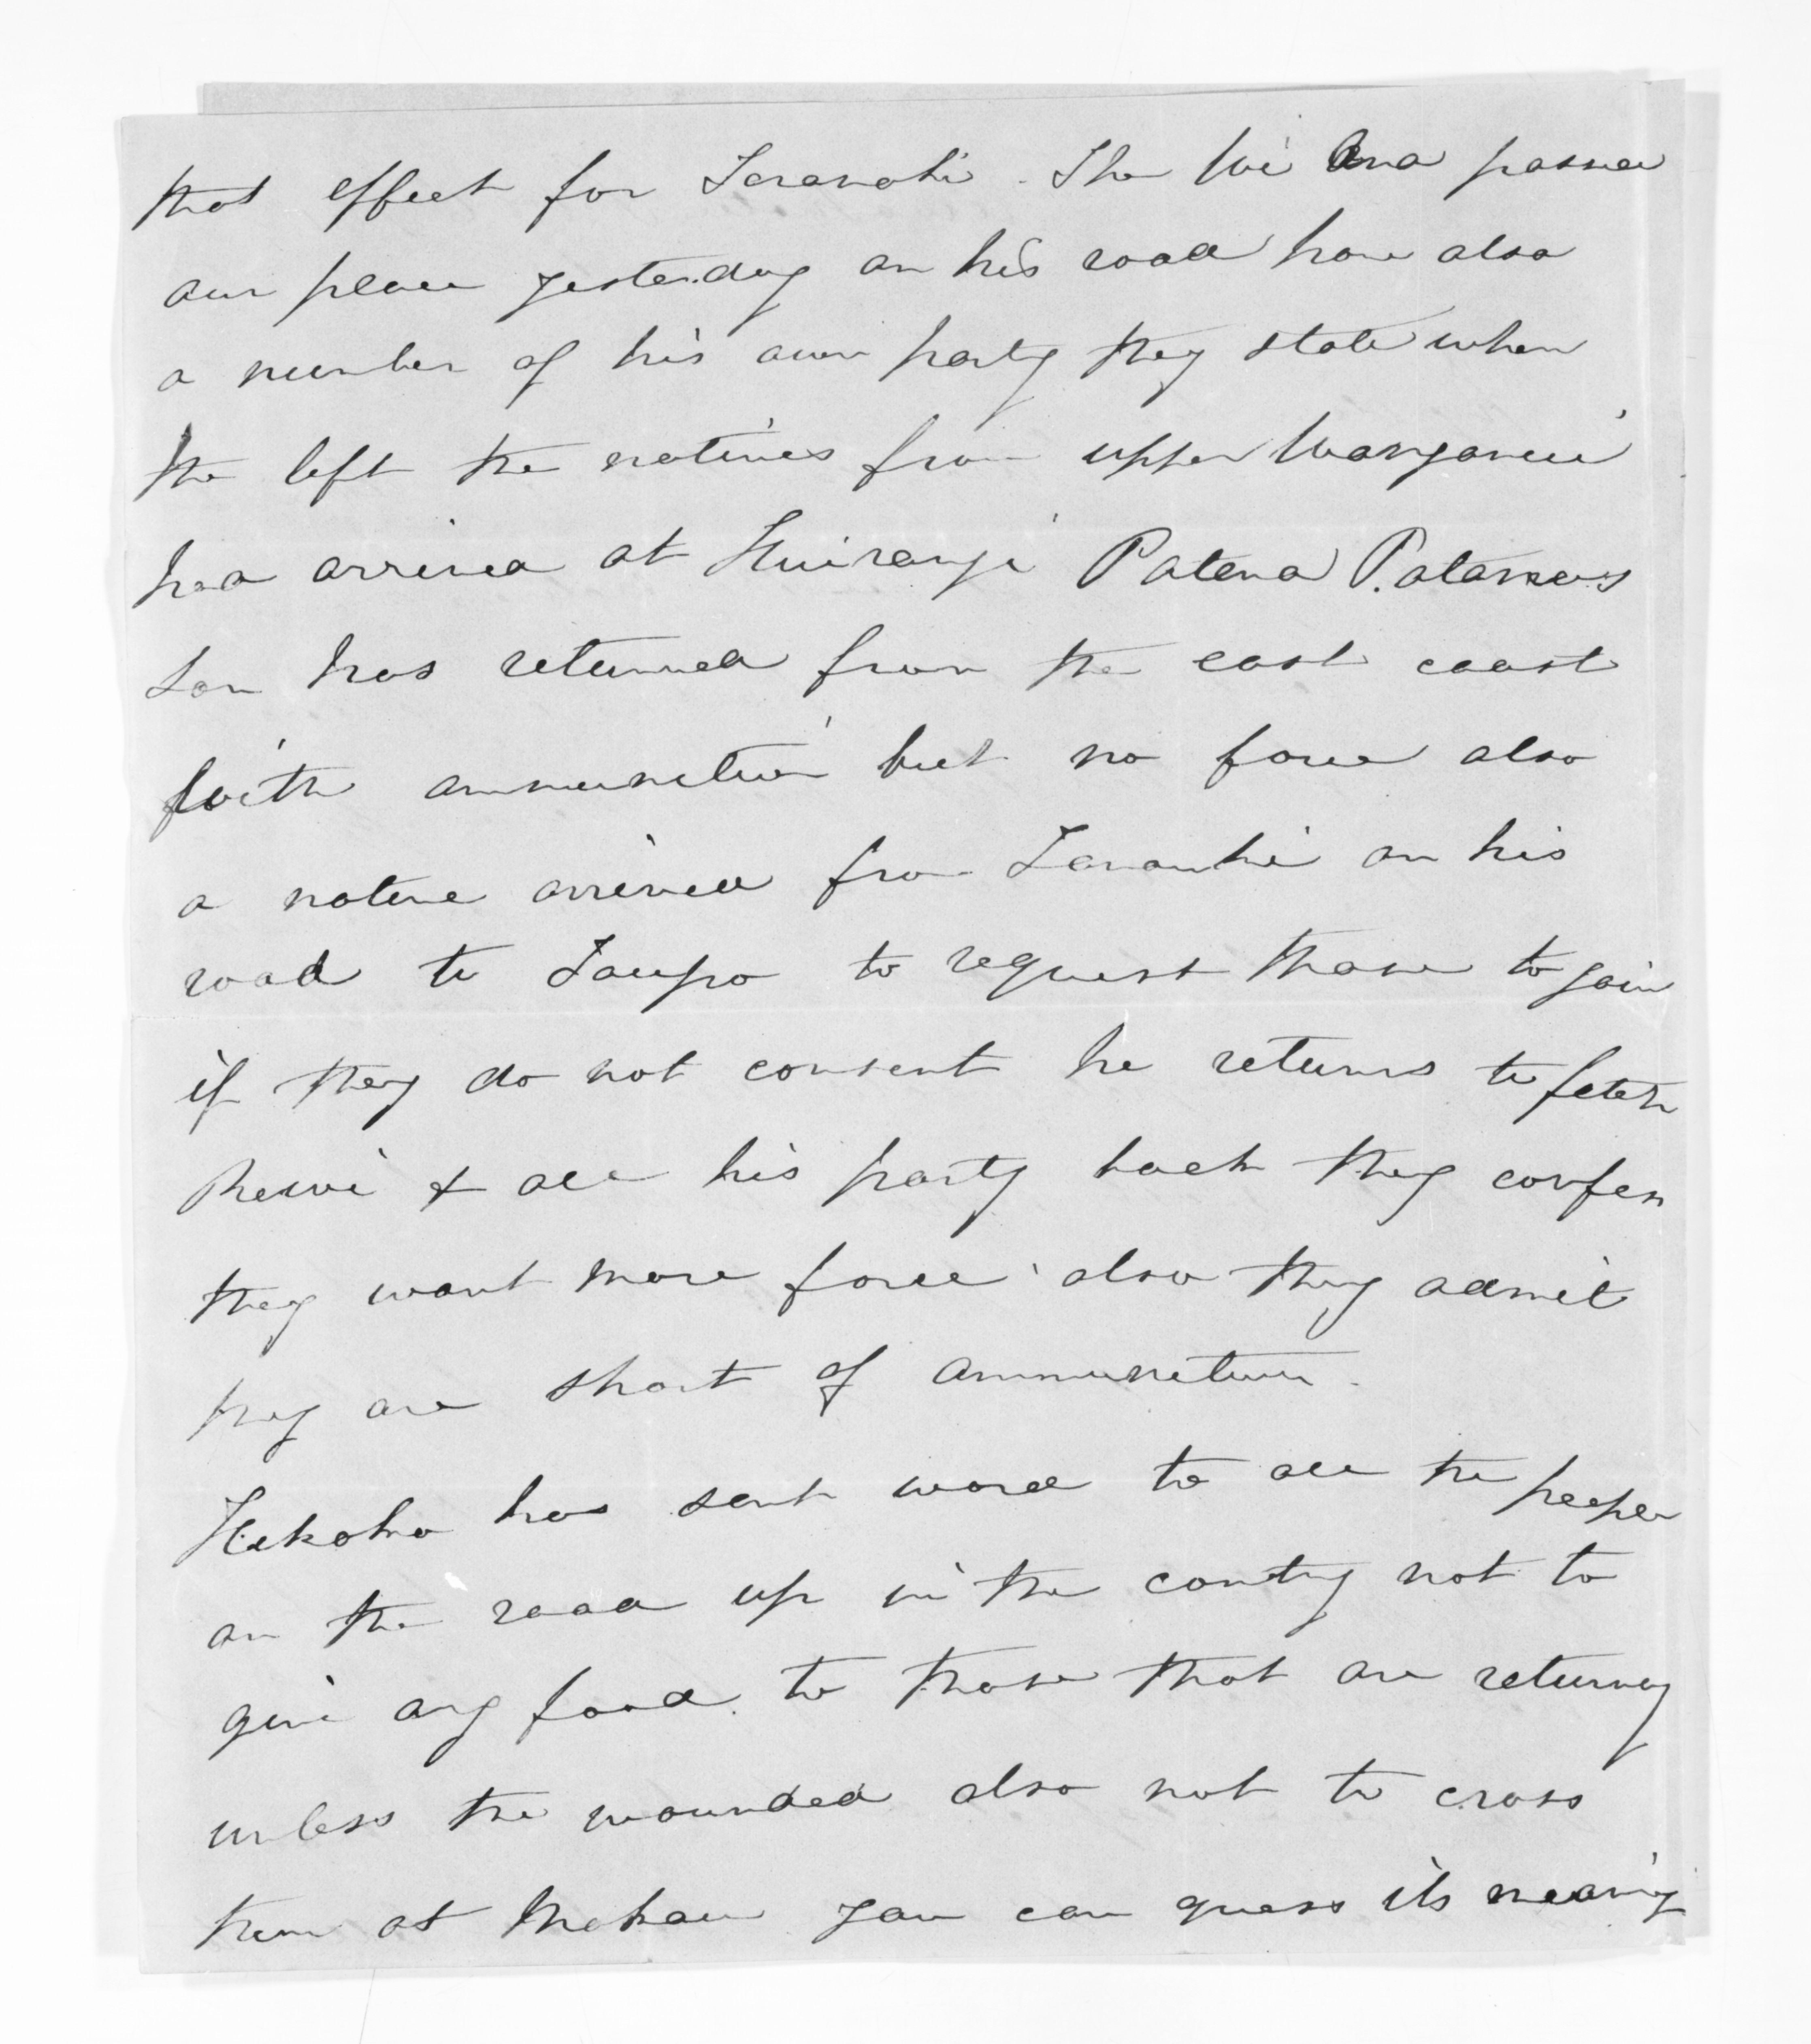 that effect for Taranaki. The Wi Ana passed
our place yesterday on his road home also
a number of his own party they state when
the left the natives from upper Wanganui
had arrived at Huirangi Patena P.atanas
son has returned from the east coast
with ammunition but no force also
a native arrived from Taranaki on his
road to Taupo to request those to join
if they do not consent he returns to fetch
Rewi & all his party back they confess
they want more force also they admit
they are short of ammunition.
Hikaka has sent word to all the people
on the road up in the contry not to
give any food to those that are returng
unless the wounded also not to cross
them at Mokau you can guess its meaning